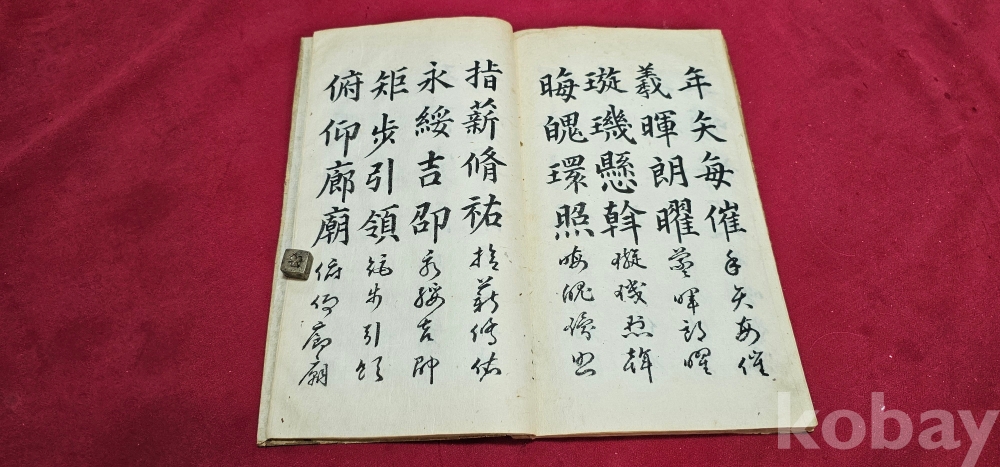 年矢每催年矢每催
羲暉朗曜羲暉朗曜
璇璣懸斡璇璣懸斡
晦魄環照晦魄環照
指薪脩祐指薪脩祐
永綏吉卲永綏吉卲
矩步引領矩步引領
俯仰廊廟俯仰廊廟
kobay